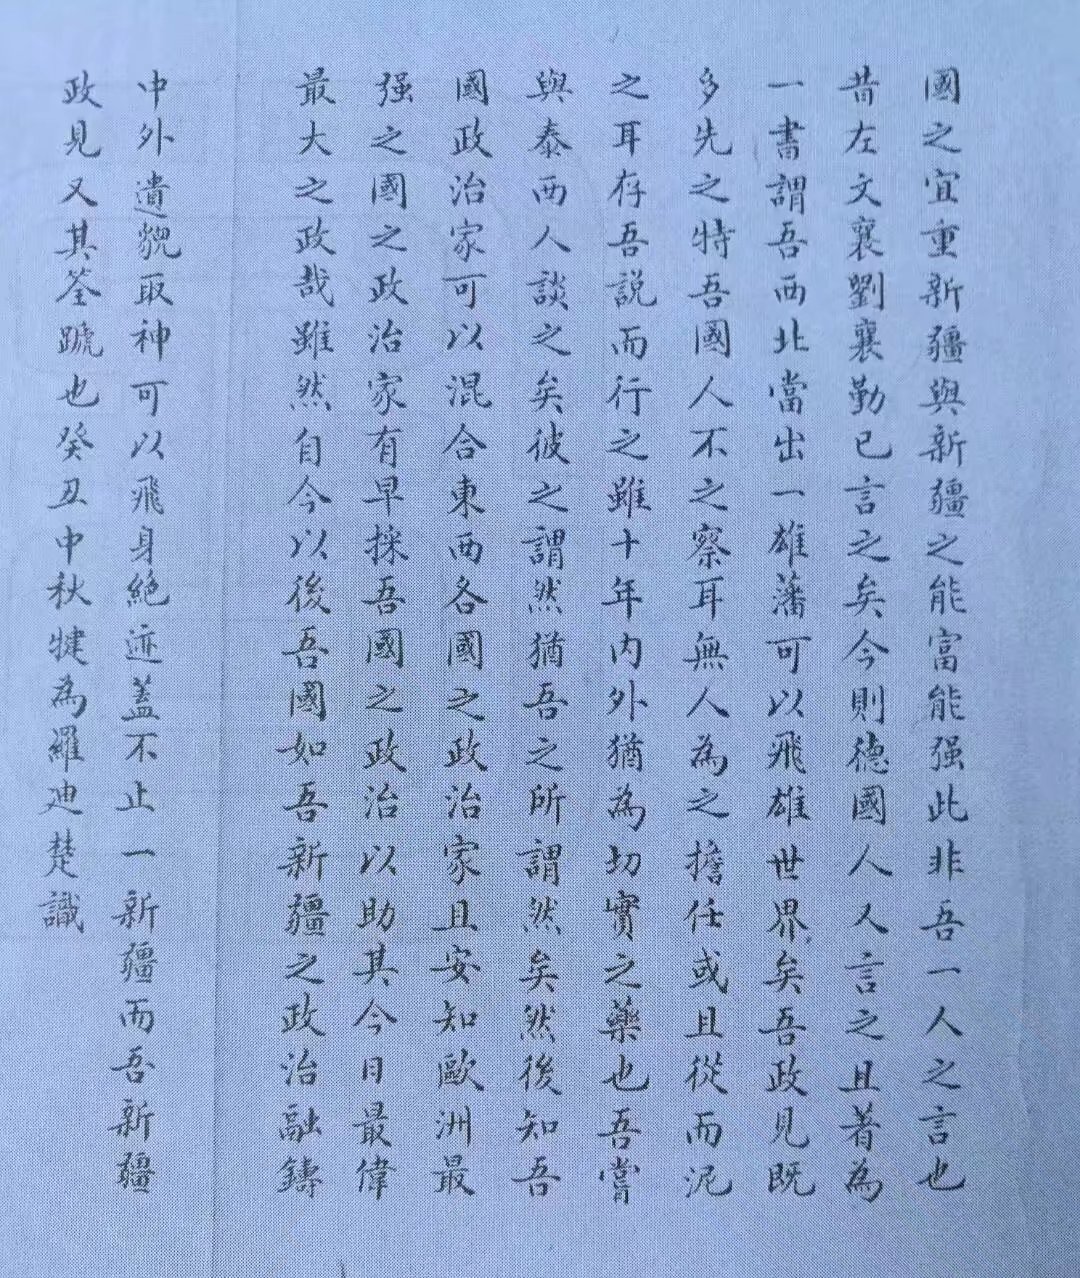 國之宜重新疆與新疆之能富能强此非吾一人之言也
昔左文襄劉襄勤已言之矣今則德國人人言之且著為
一書謂吾西北當出一雄藩可以飛雄世界矣吾政見既
多先之特吾國人不之察耳無人為之擔任或且從而泥
之耳存吾説而行之雖十年内外猶為切實之藥也吾嘗
與泰西人談之矣彼之謂然猶吾之所謂然矣然後知吾
國政治家可以混合東西各國之政治家且安知歐洲最
强之國之政治家有早採吾國之政治以助其今日最偉
最大之政哉雖然自今以後吾國如吾新疆之政治融鑄
中外遺貌取神可以飛身絕迹蓋不止一新疆而吾新疆
政見又其荃蹏也癸丑中秋犍為羅迪楚識